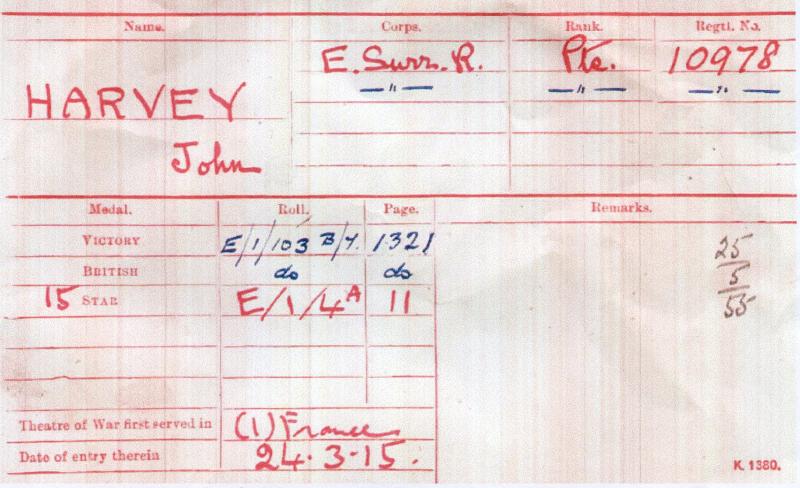 Name. Corps. Rank. Regtl. No.
HARVEY E. Surr. R. Pte. 10978
— " — — " — — " —
John
Medal. Roll. Page. Remarks.
VICTORY E/1/103 B/7. 1321
BRITISH do do
15 STAR E/1/4A 11
25
5
55
Theatre of War first served in (1) France
Date of entry therein 24.3.15.
K. 1380.